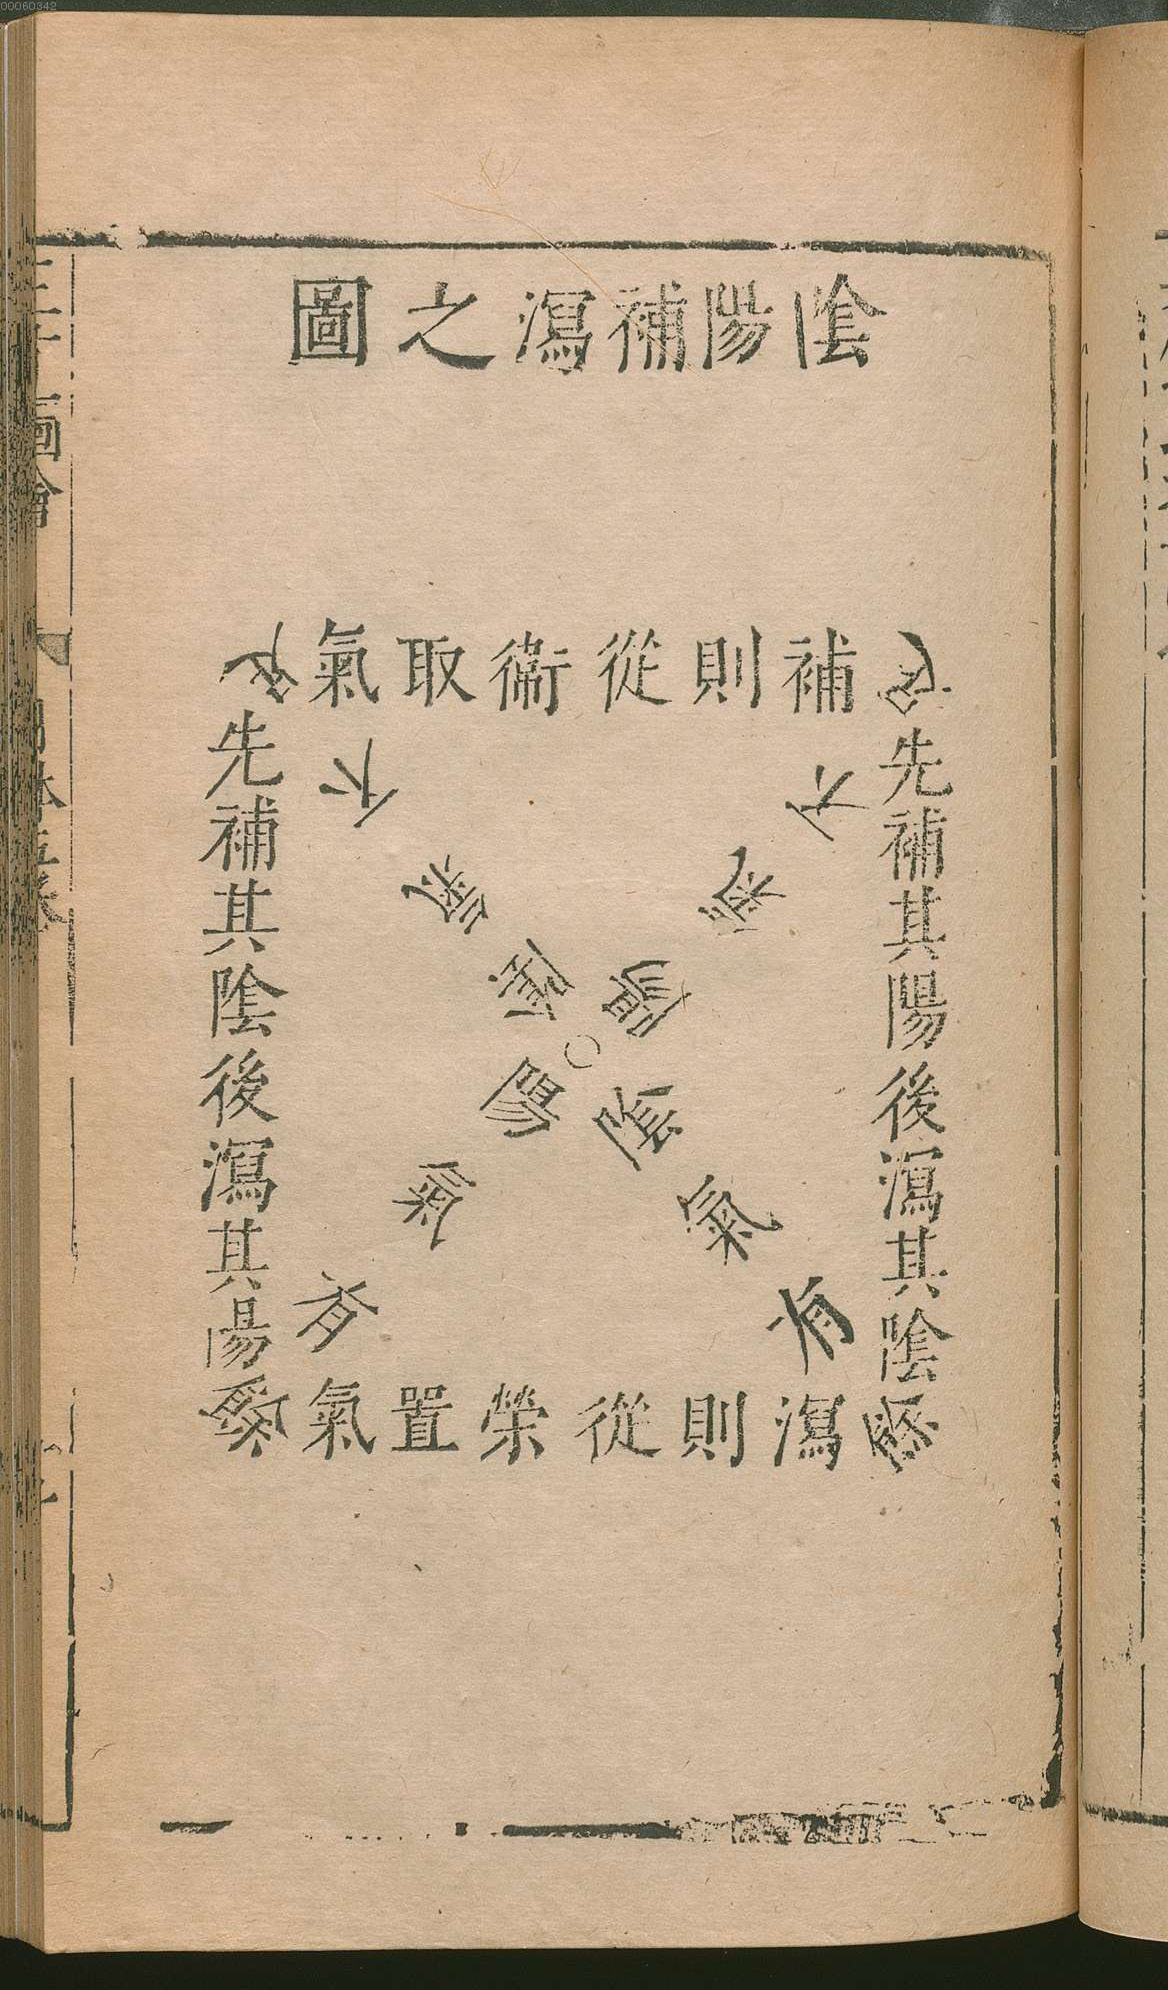 00060342
隂陽補瀉之圖
補則從衛取氣
陽氣不足
先補其陽後瀉其隂
隂氣有餘
隂氣不足
先補其隂後瀉其陽
陽氣有餘
瀉則從榮置氣
三才圖會